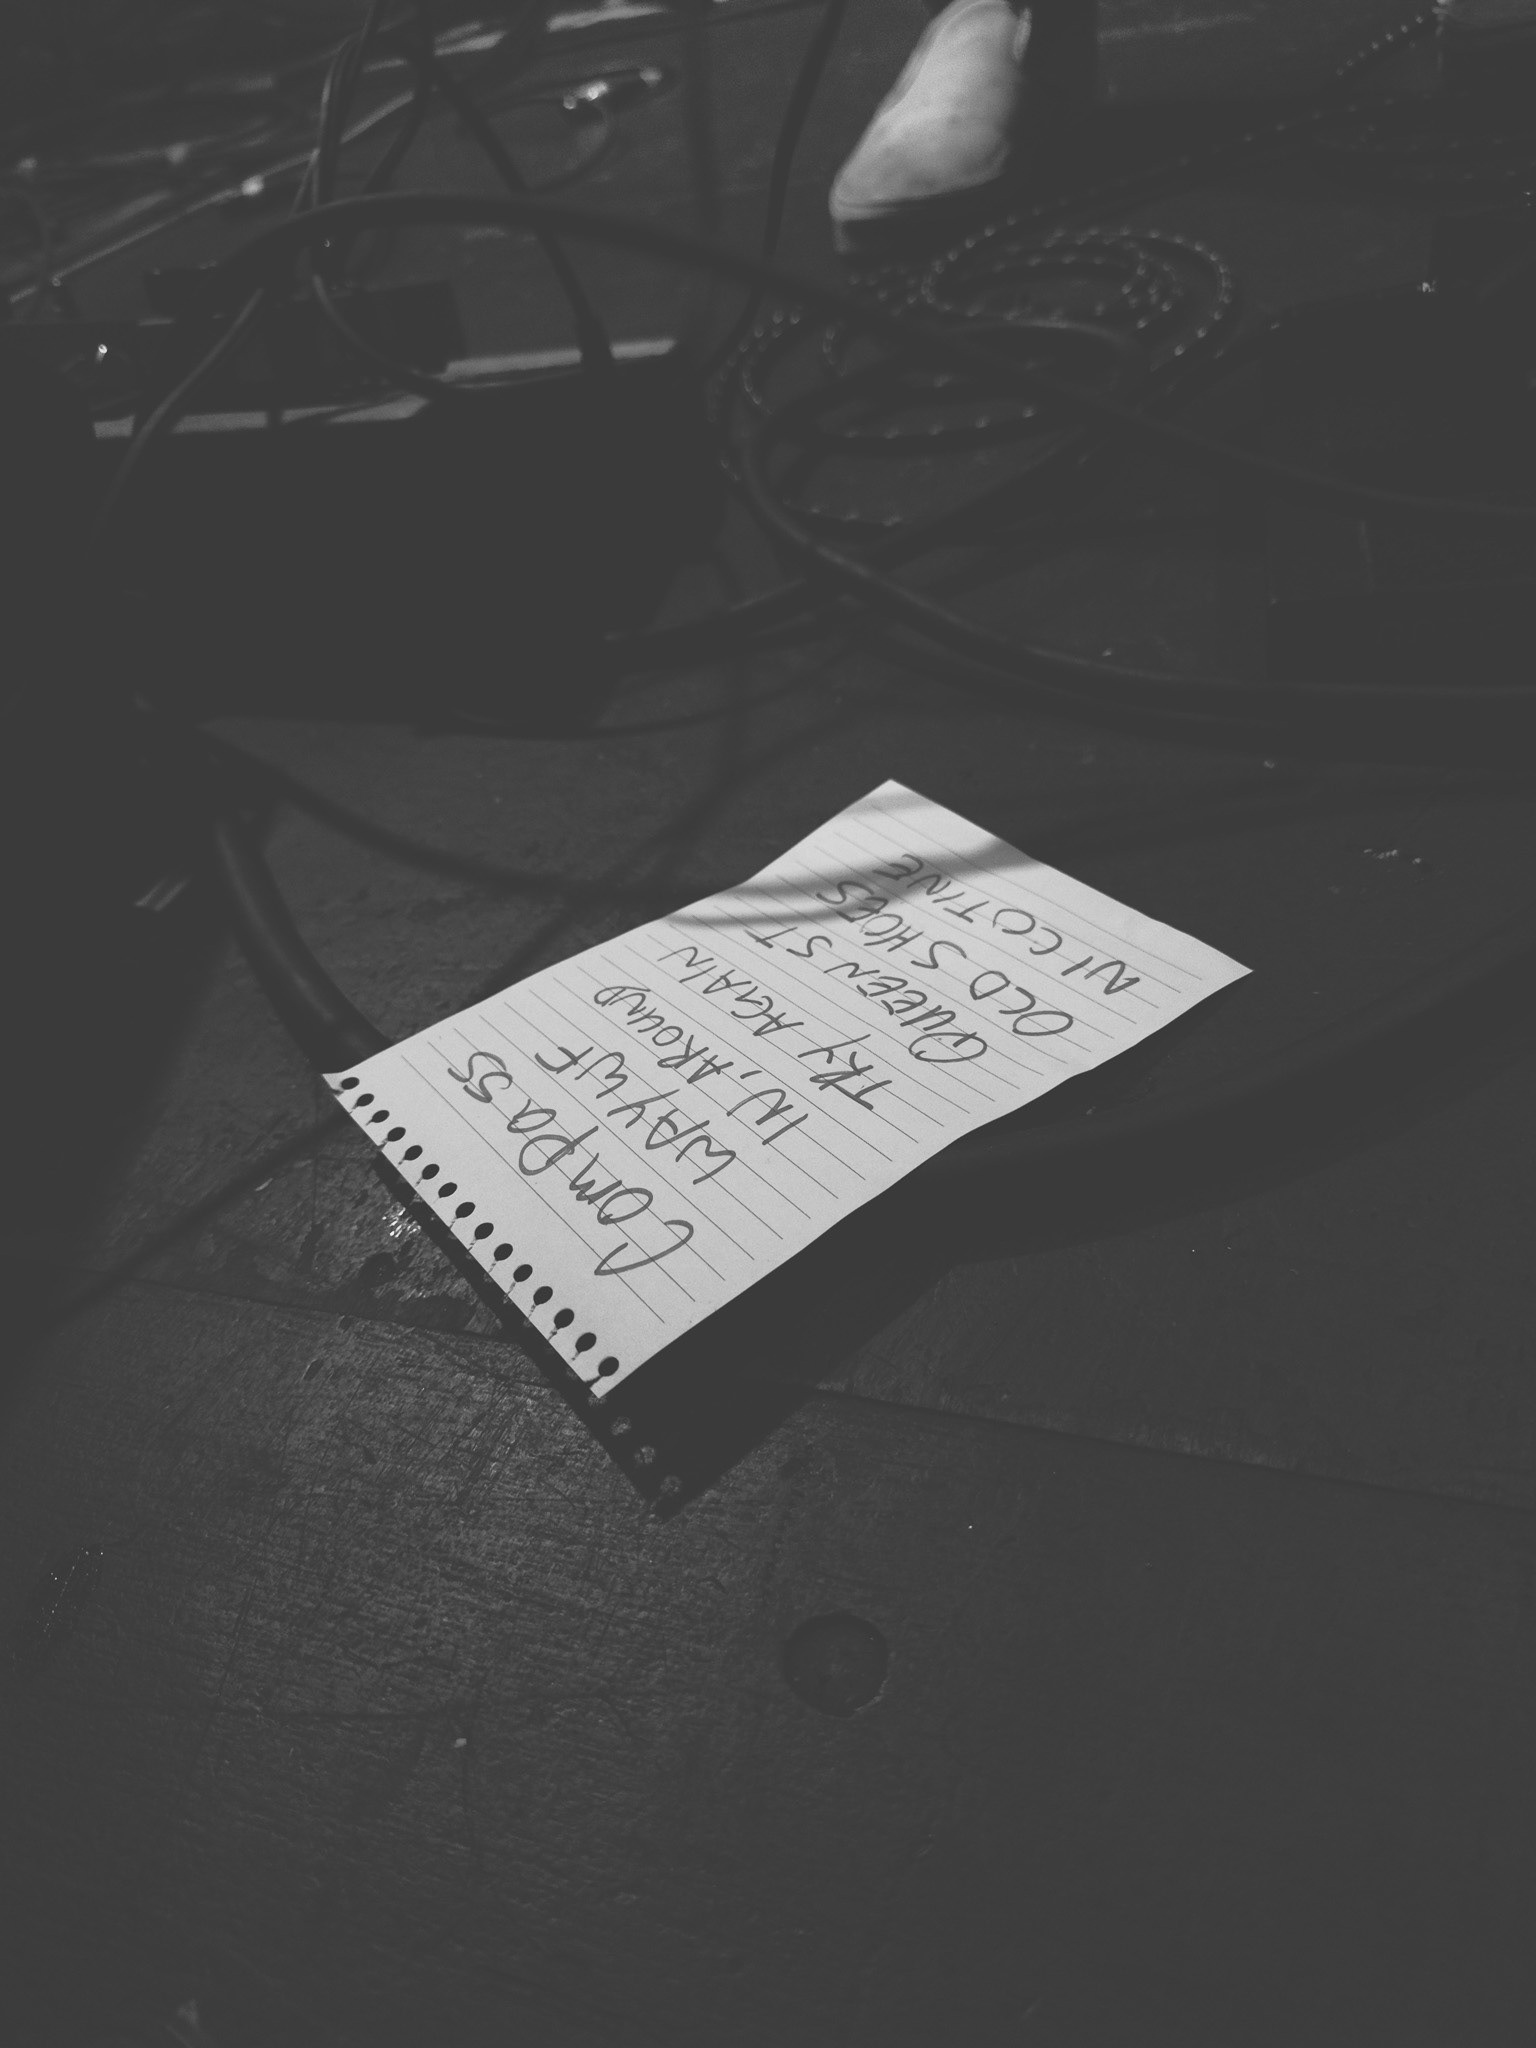 COMPASS
WAYWF
IN, AROUND
TRY AGAIN
QUEEN ST
OLD SHOES
NICOTINE